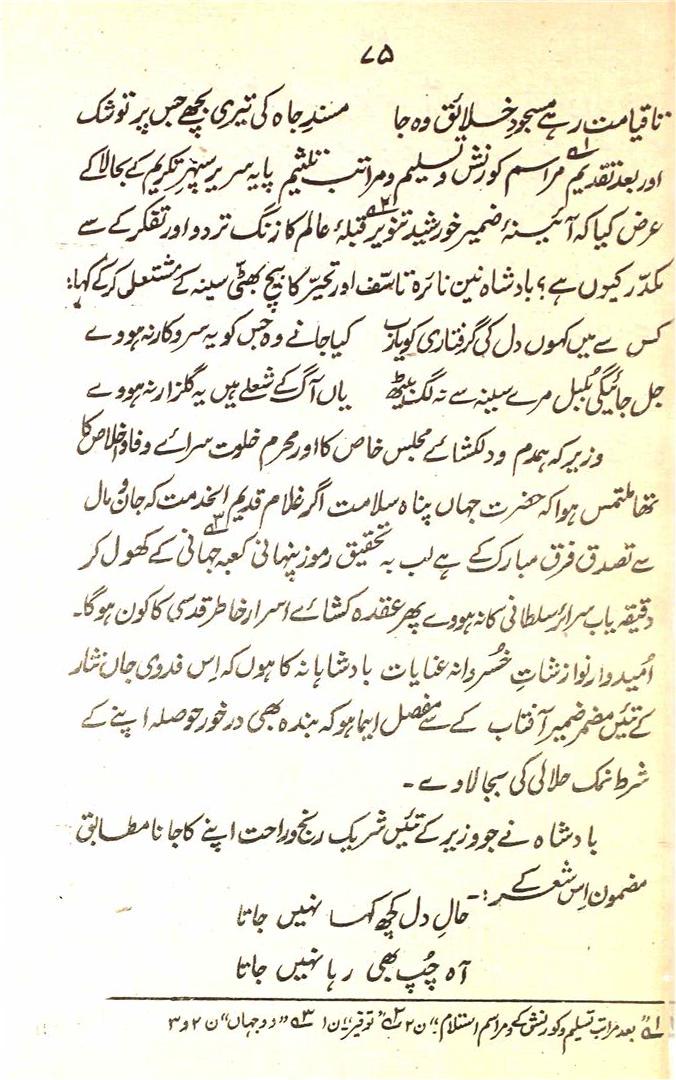 ۷۵
تا قیامت رہے مسجودِ خلائق وہ جا مسندِ جاہ کی تیری بچھے جس پر توشک
اور بعد تقدیم۱؎ مراسم کورنش و تسلیم و مراتب تلثیم پایہ سریر سپہر تکریم کے بجالا کے
عرض کیا کہ آئینۂ ضمیر خورشید تنویر۲؎ قبلۂ عالم کا زنگ تردد اور تفکر کے سے
مکدّر کیوں ہے؟ بادشاہ نین نائرہ تاسّف اور تحیّر کا بیچ بھٹی سینہ کے مشتعل کر کے کہا:
کس سے میں کہوں دل کی گرفتاری کو یارب کیا جانے وہ جس کو یہ سروکار نہ ہووے
جل جائیگی بُلبل مرے سینہ سے نہ لگ بیٹھ یاں آگ کے شعلے ہیں یہ گلزار نہ ہووے
وزیر کہ ہمدم و دلکشائے مجلس خاص کا اور محرم خلوت سرائے وفا و اخلاص کا
تھا ملتمس ہوا کہ حضرت جہاں پناہ سلامت اگر غلام قدیم الخدمت کہ جان و مال
سے تصدق فرق مبارک کے ہے لب بہ تحقیق رموز پنہانی کعبہ جہانی۳؎ کے کھول کر
دقیقہ یاب سرائر سلطانی کا نہ ہووے پھر عقدہ کشائے اسرار خاطر قدسی کا کون ہوگا۔
اُمیدوار نوازشاتِ خُسروانہ عنایات بادشاہانہ کا ہوں کہ اِس فدوی جاں نثار
کے تئیں مضمر ضمیر آفتاب کے سے مفصل ایما ہو کہ بندہ بھی درخور حوصلہ اپنے کے
شرط نمک حلالی کی بجا لاوے۔
بادشاہ نے جو وزیر کے تئیں شریک رنج و راحت اپنے کا جانا مطابق
مضمون اِس شعر کے:-
حالِ دل کچھ کہا نہیں جاتا
آہ چُپ بھی رہا نہیں جاتا
۱؎ "بعد مراتب تسلیم و کورنش کے و مراسم استلام" ن ۲ ۲؎ "توقیر" ن ۱ ۳؎ "دو جہاں" ن ۲ و ۳